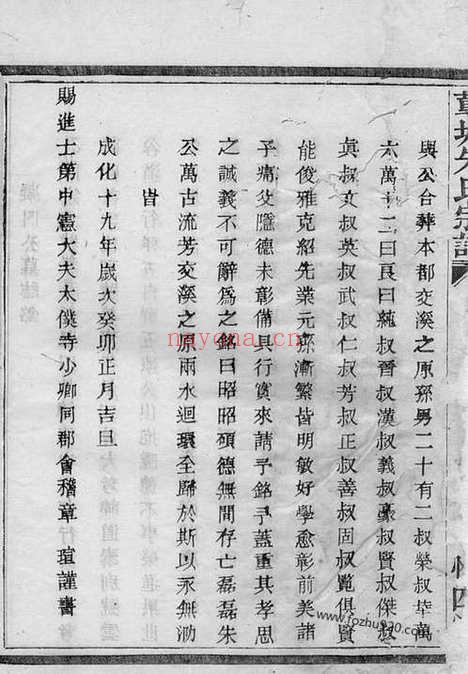 與公合葬本都交溪之原孫男二十有二叔榮叔華萬
六萬十二曰良曰純叔晉叔漢叔義叔豪叔賢叔傑叔
真叔文叔英叔武叔仁叔芳叔正叔善叔固叔覽俱賢
能俊雅克紹先業元孫漸繁皆明敏好學愈彰前美諸
子痛父隱德未彰備具行實來請予銘予蓋重其孝思
之誠義不可辭為之銘曰昭昭碩德無間存亡磊磊朱
公萬古流芳交溪之原兩水迴環全歸於斯以永無泐
皆
成化十九年歲次癸卯正月吉旦
賜進士第中憲大夫太僕寺少卿同郡會稽章瑄謹書
朱氏宗譜
nayona.cn
www.fozhu920.com